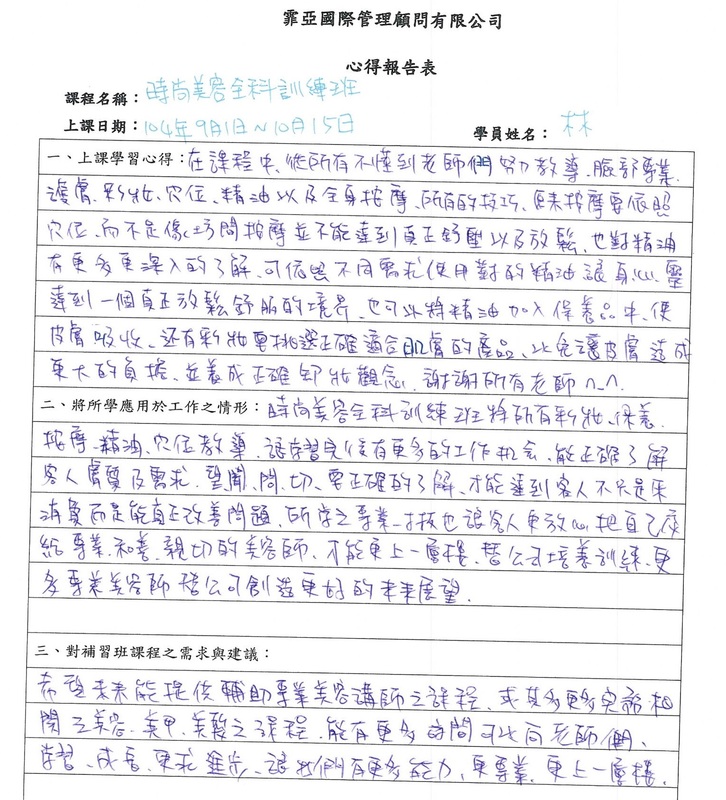 霏亞國際管理顧問有限公司
心得報告表
課程名稱：時尚美容全科訓練班
上課日期：104年9月1日~10月15日 學員姓名：林
一、上課學習心得：在課程中、從所有不懂到老師們努力教導、臉部專業、
護膚、彩妝、穴位、精油以及全身按摩、所有的技巧、原來按摩要依照
穴位、而不是像坊間按摩並不能達到真正舒壓以及放鬆、也對精油
有更多更深入的了解、可依照不同需求使用對的精油讓身、心、靈
達到一個真正放鬆舒服的境界、也可以將精油加入保養品中、使
皮膚吸收、還有彩妝要挑選正確適合肌膚的產品、以免讓皮膚造成
更大的負擔、並養成正確卸妝觀念、謝謝所有老師^^.
二、將所學應用於工作之情形：時尚美容全科訓練班將所有彩妝、保養、
按摩、精油、穴位教導、讓學習完後有更多的工作機會、能正確了解
客人膚質及需求、望、聞、問、切、要正確的了解、才能達到客人不只是來
消費而是能真正改善問題、所學之專業技也讓客人更放心把自己交
給專業、和善、親切的美容師、才能更上一層樓、替公司培養訓練、更
多專業美容師替公司創造更好的未來展望.
三、對補習班課程之需求與建議：
希望未來能提供輔助專業美容講師之課程、或其多更多完備相
關之美容、美甲、美髮之課程、能有更多時間可以向老師們、
學習、成長、更求進步、讓我們有更多能力、更專業、更上一層樓.